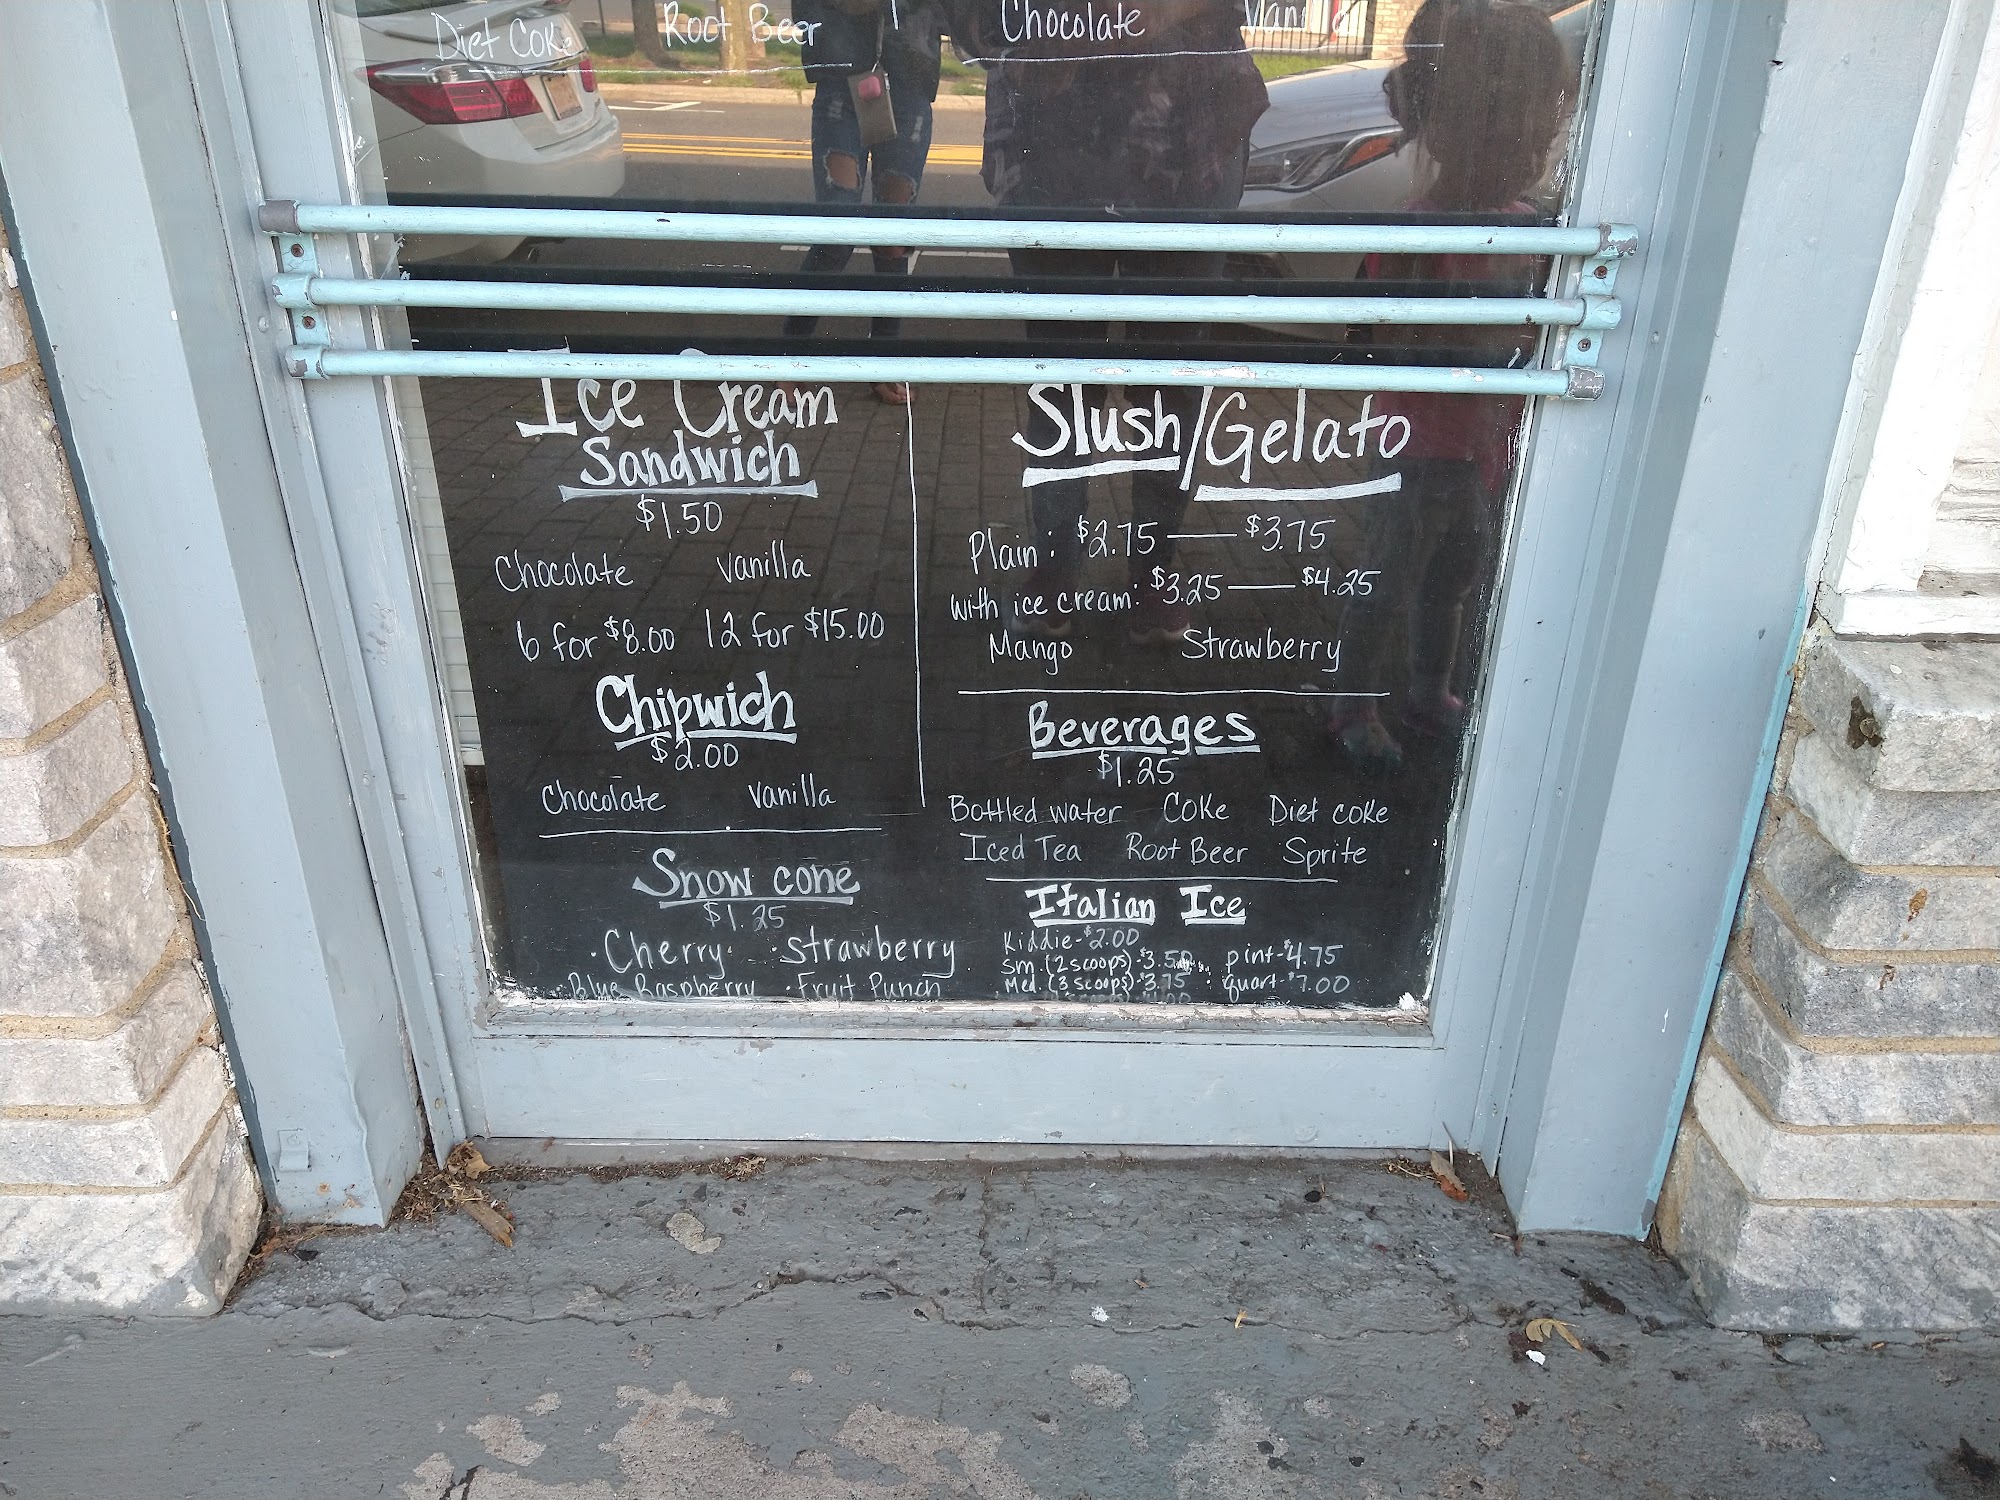 Diet Coke Root Beer Chocolate
Ice Cream
Sandwich
$1.50
Chocolate vanilla
6 for $8.00 12 for $15.00
Chipwich
$2.00
Chocolate vanilla
Snow cone
$1.25
· Cherry · · strawberry
· Blue Raspberry · Fruit Punch
Slush/Gelato
Plain: $2.75 — $3.75
with ice cream: $3.25 — $4.25
Mango Strawberry
Beverages
$1.25
Bottled water Coke Diet coke
Iced Tea Root Beer Sprite
Italian Ice
Kiddie-$2.00
Sm. (2 scoops)-$3.50 pint-$4.75
Med. (3 scoops)-$3.75 · quart-$7.00